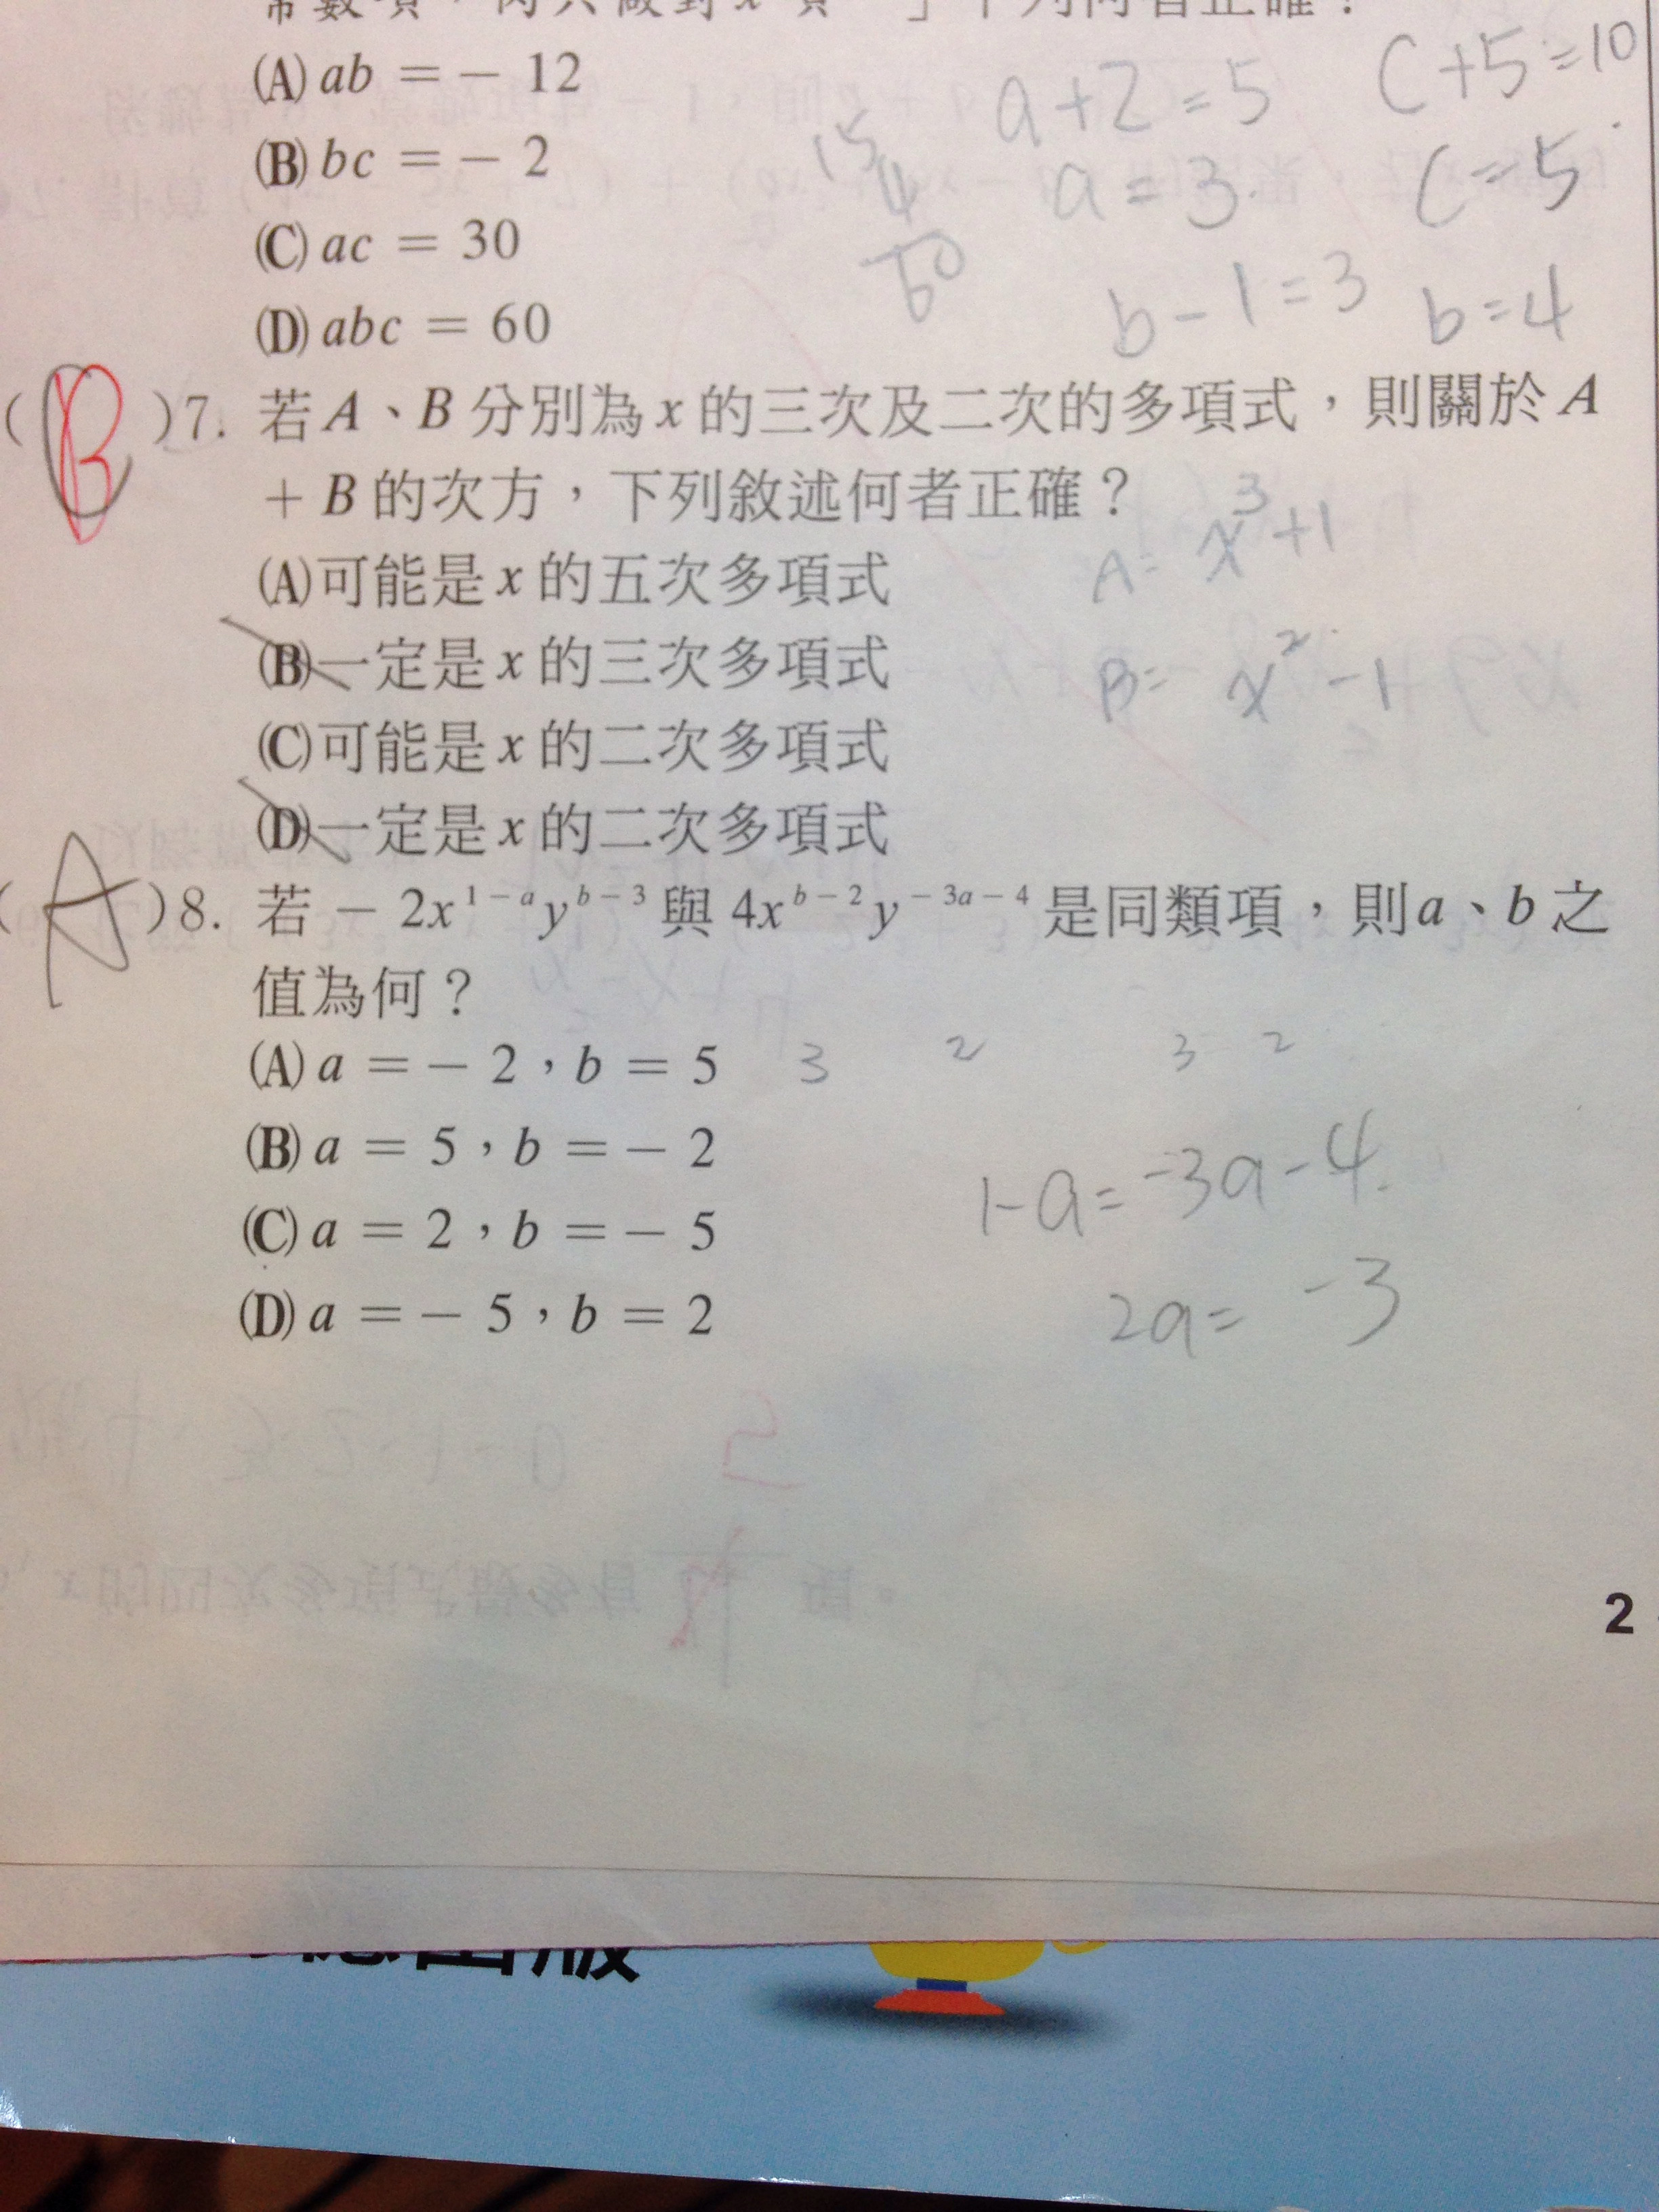 下列何者正確？
(A) ab = － 12
(B) bc = － 2
(C) ac = 30
(D) abc = 60
a+2=5
c+5=10
a=3
c=5
15
4
60
b-1=3
b=4
( B )7. 若A、B分別為x的三次及二次的多項式，則關於A
＋B的次方，下列敘述何者正確？
(A)可能是x的五次多項式
(B)一定是x的三次多項式
(C)可能是x的二次多項式
(D)一定是x的二次多項式
A= x³+1
B= x²-1
( A )8. 若－2x^{1－a}y^{b－3}與4x^{b－2}y^{－3a－4}是同類項，則a、b之
值為何？
(A) a = － 2，b = 5
3 2 3 2
(B) a = 5，b = － 2
(C) a = 2，b = － 5
(D) a = － 5，b = 2
1-a=-3a-4
2a= -3
2
出版